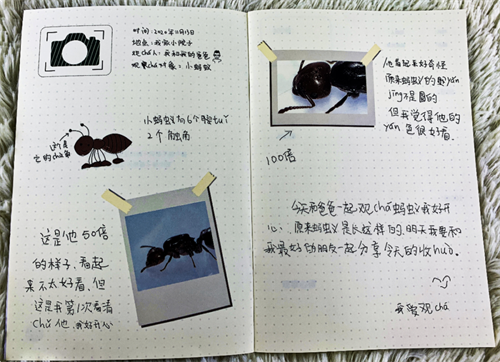 时间:2020年11月15日
地点:我家小院子
观chá人:我和我的爸爸
观察chá对象:小蚂蚁
小蚂蚁有6个腿tuǐ
2个触角
这是
它的chù角
这是他50倍
的样子,看起
来不太好看,但
这是我第1次看清
chǔ他,我好开心
他看起来好奇怪
原来蚂蚁的眼yǎn
jīng不是圆的
但我觉得他的
yán色很好看。
100倍
今天和爸爸一起观chá蚂蚁我好开
心,原来蚂蚁是长这样的,明天我要和
我最好的朋友一起分享今天的收huò。
我爱观chá